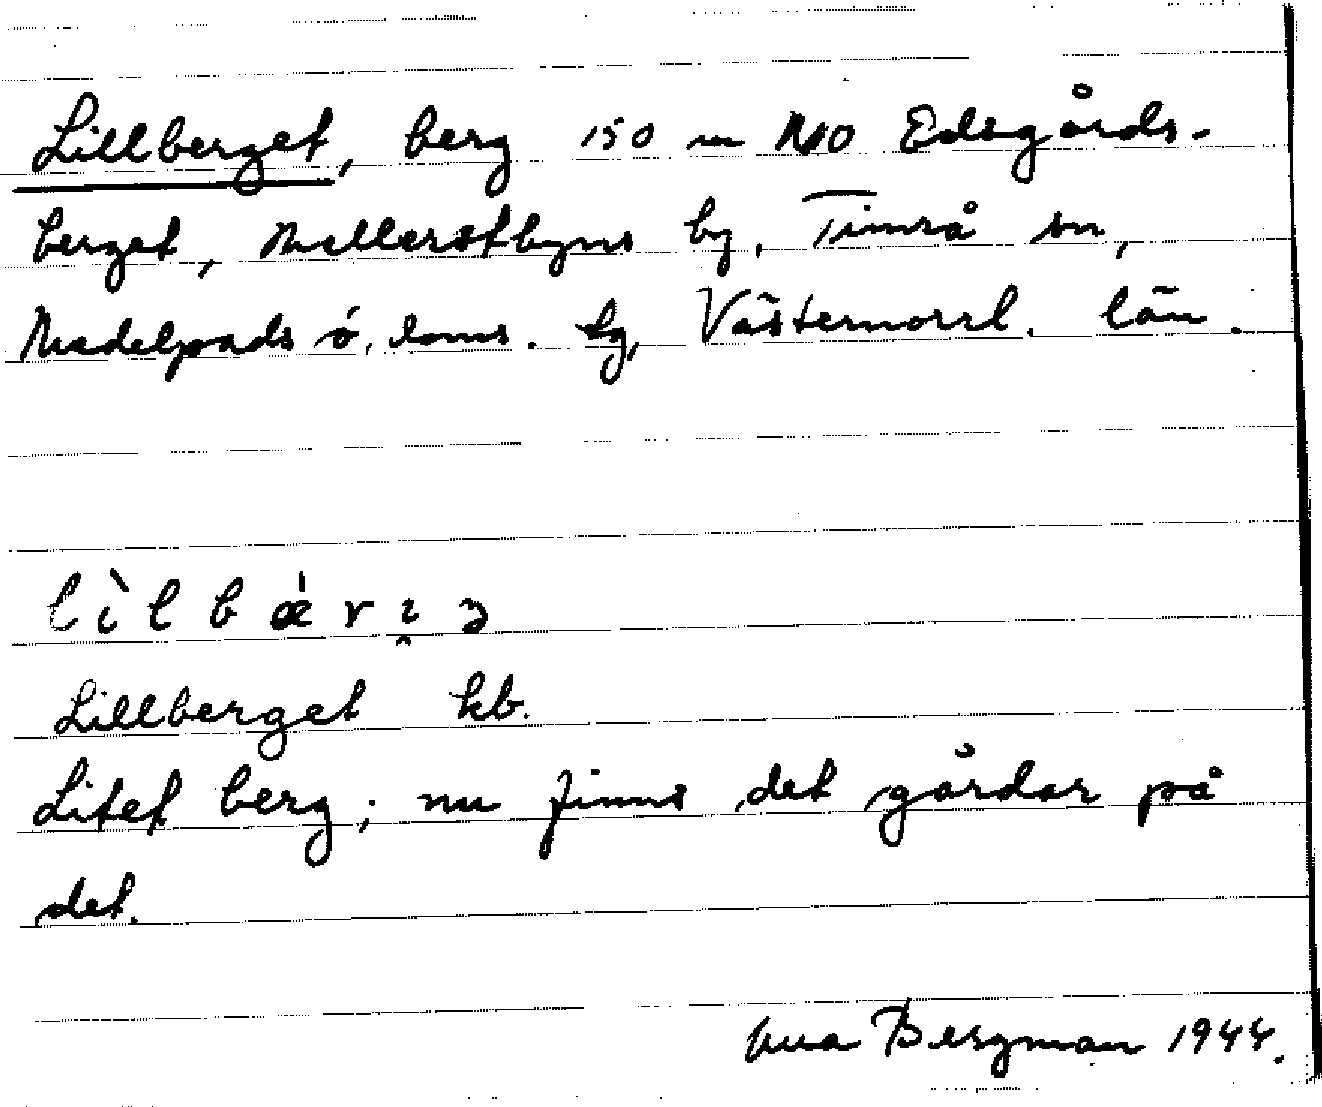 Lillberget, berg 150 m NO Edsgårds-
berget, Mellerstbyns by, Timrå sn,
Medelpads ö. doms. tg, Västernorrl. län.
lìlbærı̯ə
Lillberget kb.
Litet berg; nu finns det gårdar på
det.
Bergman 1944.